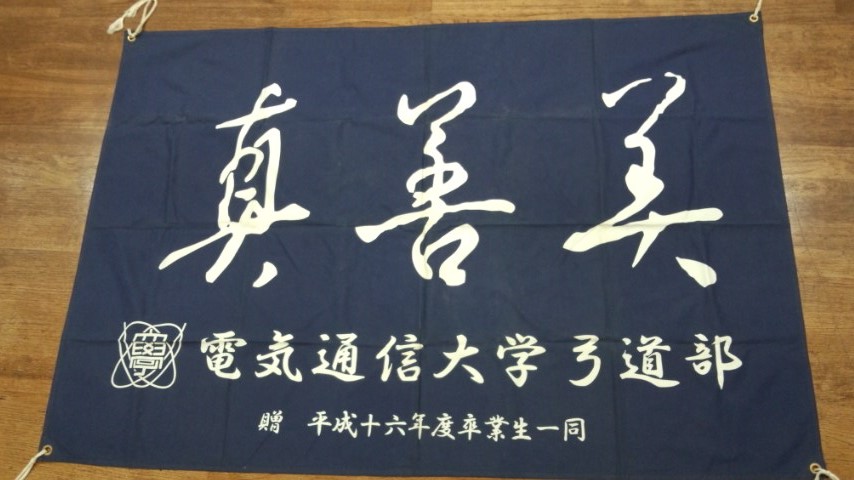 真善美
電気通信大学弓道部
贈 平成十六年度卒業生一同